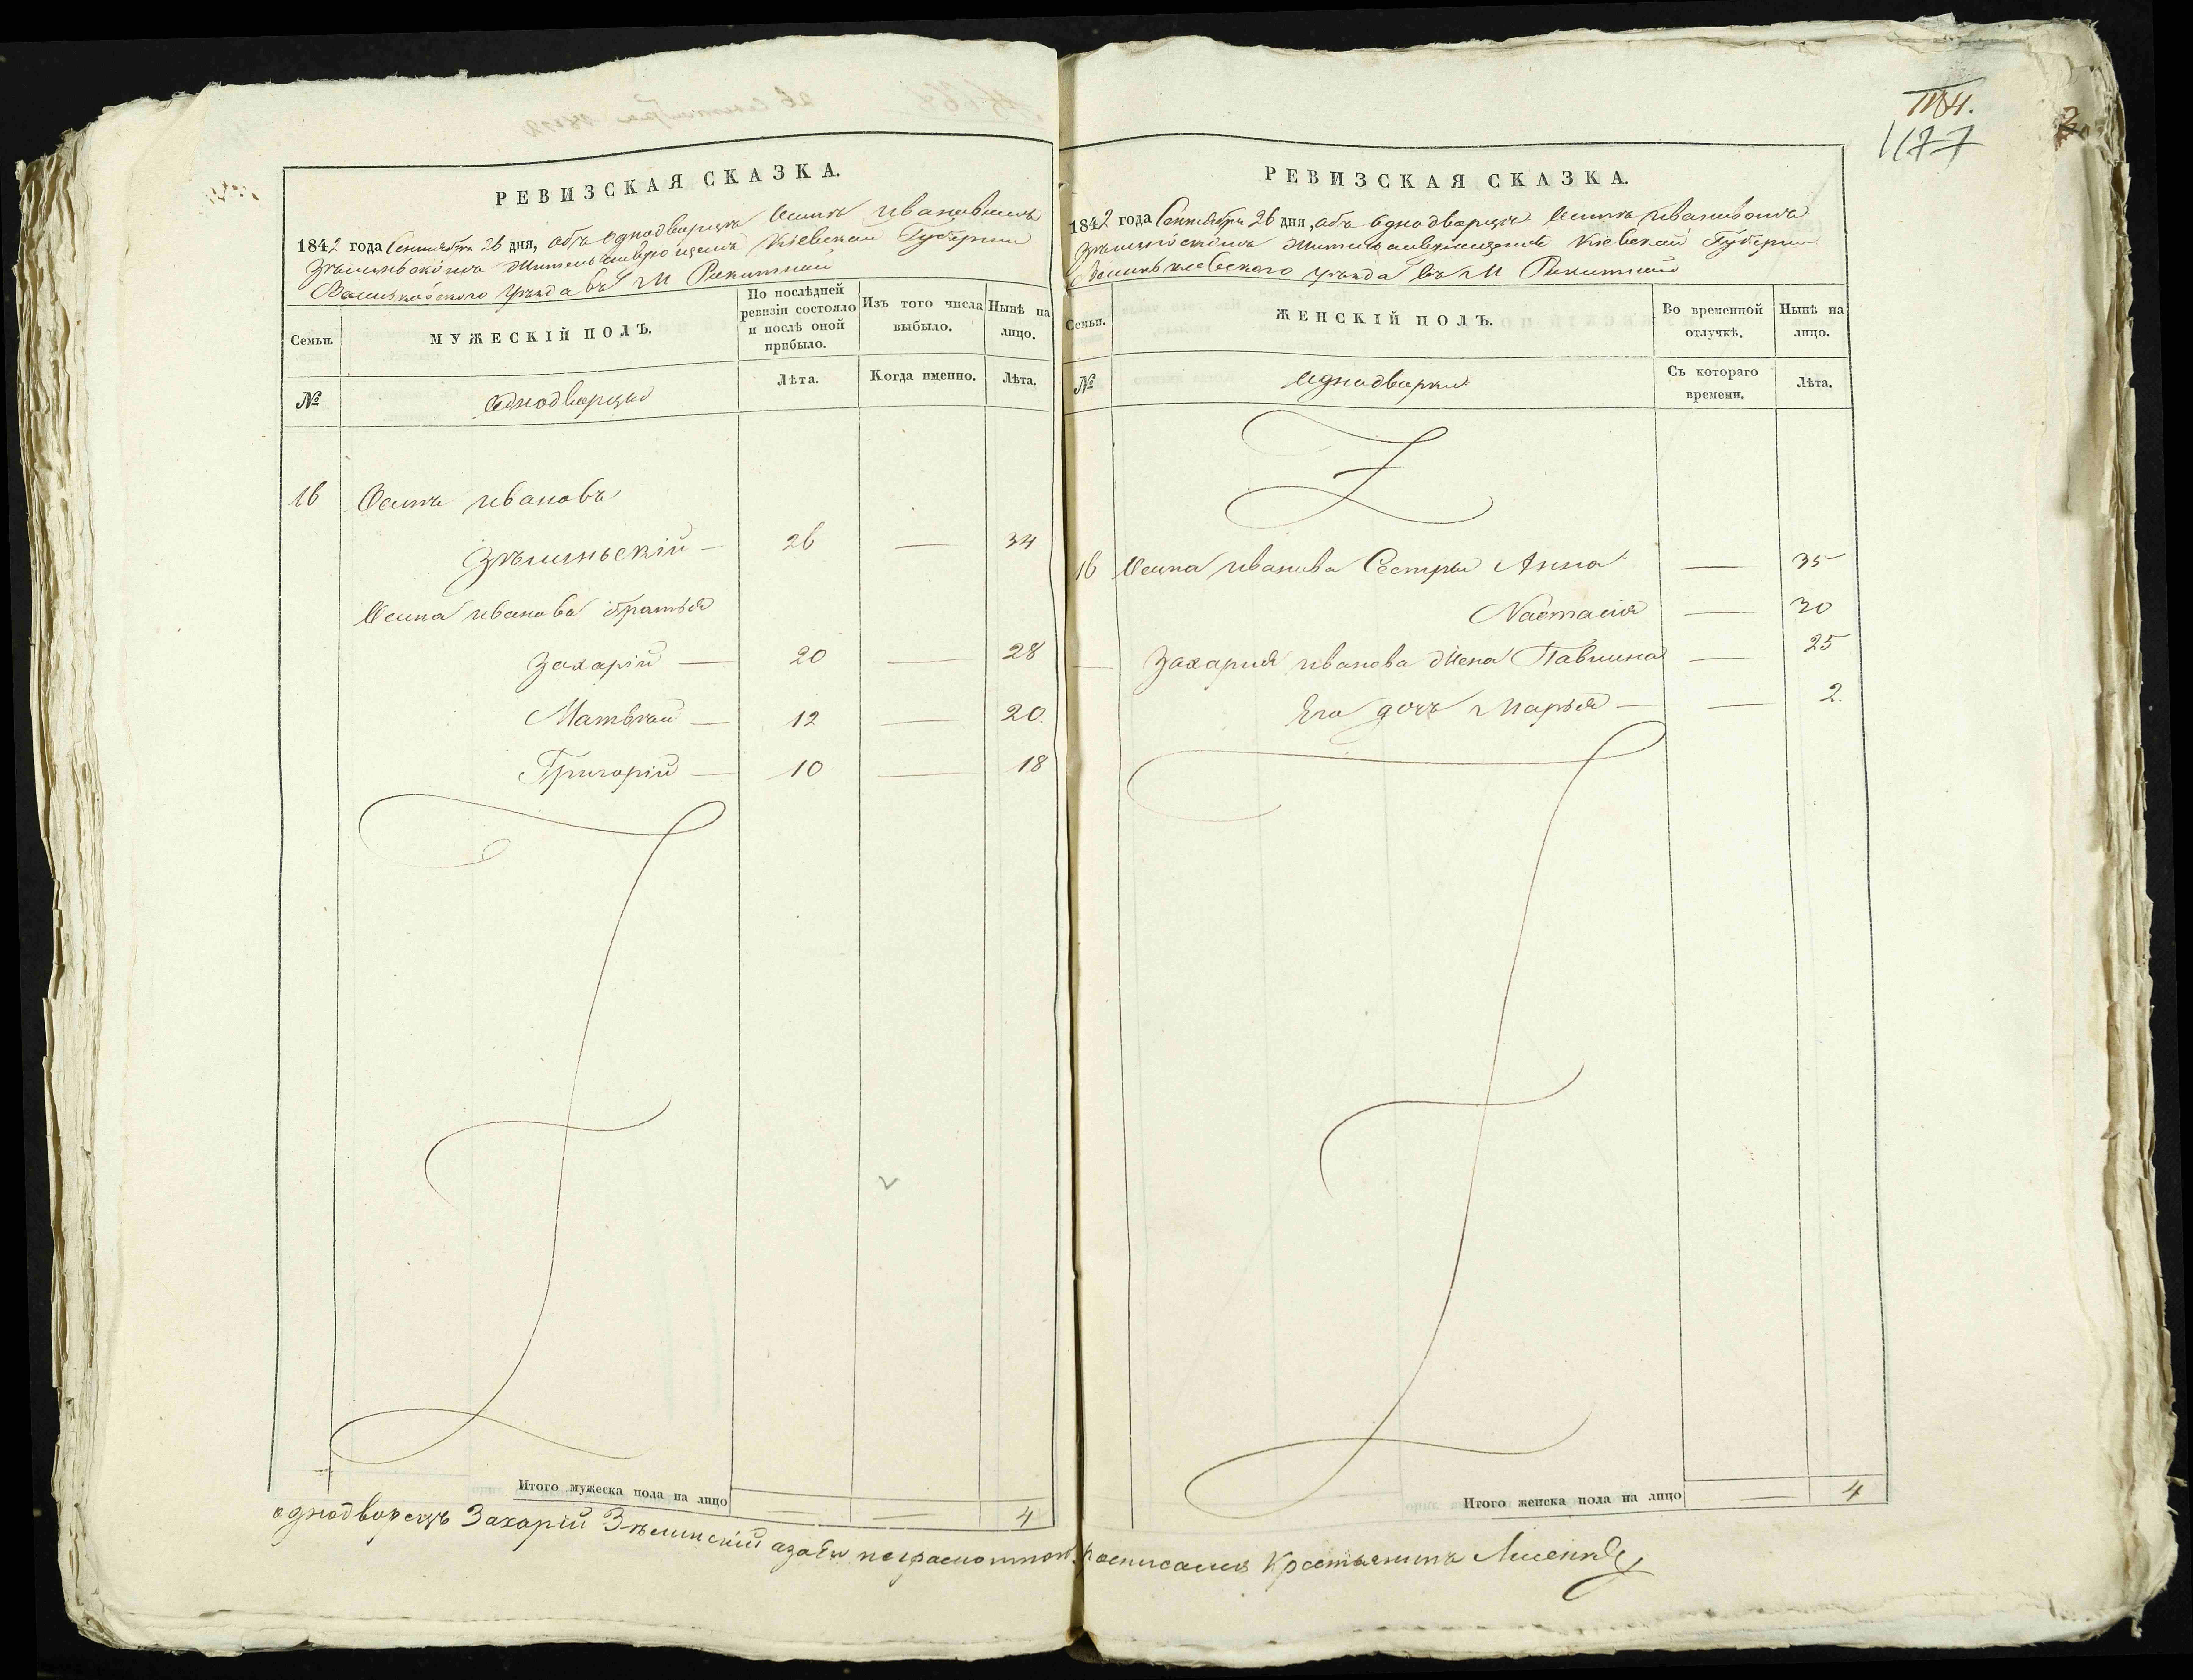 1184.
1177
РЕВИЗСКАЯ СКАЗКА.
1842 года Сентября 26 дня, объ однодворцѣ Осипѣ Ивановичѣ
Зѣлинскомъ жительствующемъ Кіевской Губерніи
Васильковскаго уѣзда въ М Ракитной
Семьи.
МУЖЕСКІЙ ПОЛЪ.
По послѣдней ревизіи состояло и послѣ оной прибыло.
Изъ того числа выбыло.
Нынѣ на лицо.
№
Однодворцы
Лѣта.
Когда именно.
Лѣта.
16 Осипъ Ивановъ
Зѣлиньскій — 26 — 34
Осипа Иванова братья
Захарій — 20 — 28
Матвѣй — 12 — 20.
Григорій — 10 — 18
Итого мужеска пола на лицо — — 4
РЕВИЗСКАЯ СКАЗКА.
1842 года Сентября 26 дня, объ однодворцѣ Осипѣ Ивановичѣ
Кіевской Губерніи
уѣзда въ М Ракитной
Семьи.
ЖЕНСКІЙ ПОЛЪ.
Во временной отлучкѣ.
Нынѣ на лицо.
№
Однодворки
Съ котораго времени.
Лѣта.
16 Осипа Иванова Сестры Анна — 35
Настасія — 30
— Захарія Иванова жена Павлина — 25
Его дочь Марья — — 2.
Итого женска пола на лицо — 4
однодворецъ Захарій Зѣлинскій а за его неграмотном. росписался Крестьянинъ Лисенко